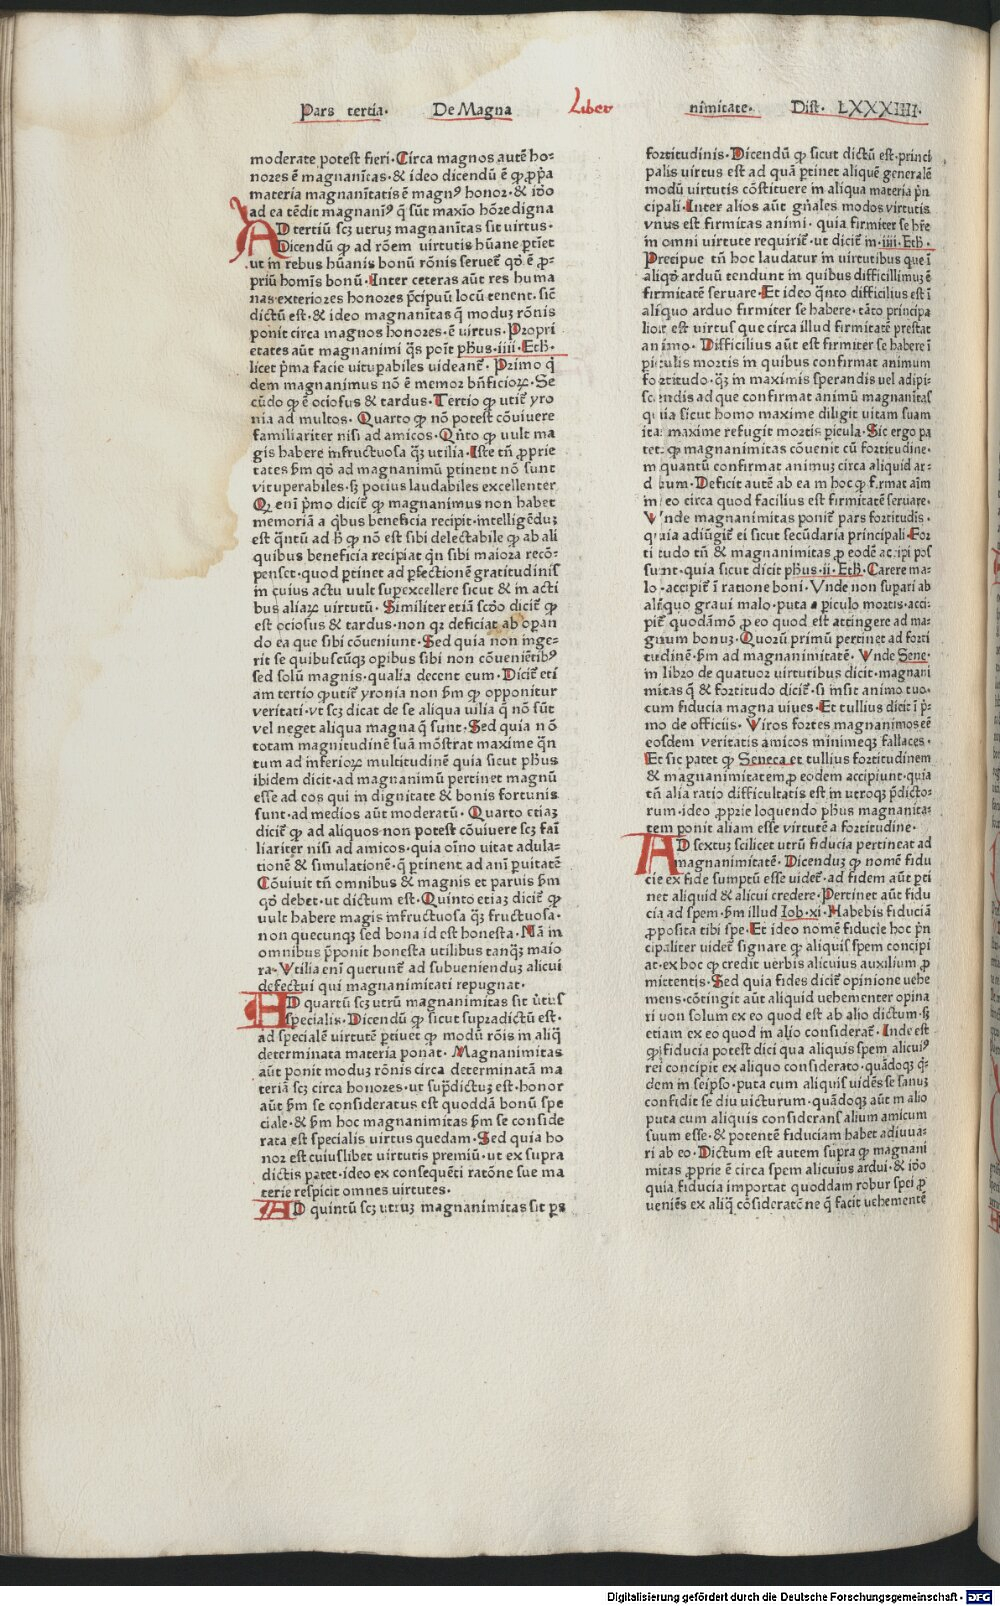 Pars tertia. De Magna Liber nimitate. Dist. LXXXIIII.
moderate potest fieri. Circa magnos autē ho=
nores ē magnanītas. & ideo dicendū ē ꝙ ꝓp̄a
materia magnanītatis ē magnꝰ honor. & iđo
ad ea tēdit magnanīꝰ q̄ sūt maxīo hōre digna
AD tertiū scꝫ utruꝫ magnanītas sit virtus.
Dicendū ꝙ ad rōem virtutis hūane ꝑtīet
ut in rebus hūanis bonū rōnis seruet̄ qđ ē ꝓ=
priū homīs bonū. Inter ceteras aūt res huma
nas exteriores honores p̄cipuū locū tenent. sic̄
dictū est. & ideo magnanitas q̄ moduꝫ rōnis
ponit circa magnos honores. ē virtus. Propri
etates aūt magnanimi q̄s poīt ph̄us. iiii. Eth̄.
licet p̄ma facie vituꝑabiles videant̄. Primo q̄
dem magnanimus nō ē memor bn̄ficioꝝ. Se
cūdo ꝙ ē ociosus & tardus. Tertio ꝙ utit̄ yro
nia ad multos. Quarto ꝙ nō potest cōuiuere
familiariter nisi ad amicos. Qn̄to ꝙ uult ma
gis habere infructuosa q̄ꝫ utilia. Iste tn̄ ꝓprie
tates ẜm qđ ad magnanimū ꝑtinent nō sunt
vituperabiles. sꝫ potius laudabiles excellenter
Qꝛ enī p̄mo dicit̄ ꝙ magnanimus non habet
memoriā a qƀus beneficia recipit. intelligēduꝫ
est q̄ntū ad ħ ꝙ nō est sibi delectabile ꝙ ab ali
quibus beneficia recipiat qn̄ sibi maiora recō=
penset. quod ꝑtinet ad ꝑfectionē gratitudinis
in cuius actu uult suꝑexcellere sicut & in acti
bus aliaꝝ virtutū. Similiter etiā scđo dicit̄ ꝙ
est ociosus & tardus. non qꝛ deficiat ab oꝑan
do ea que sibi cōueniunt. Sed quia non inge=
rit se quibuscūqꝫ oꝑibus sibi non cōueniētibꝰ
sed solū magnis. qualia decent eum. Dicit̄ eti
am tertio ꝙ utit̄ yronia non ẜm ꝙ opponitur
veritati. vt scꝫ dicat de se aliqua uilia q̄ nō sūt
vel neget aliqua magna q̄ sunt. Sed quia nō
totam magnitudinē suā mōstrat maxime q̄n
tum ad inferioꝝ multitudinē quia sicut ph̄us
ibidem dicit. ad magnanimū pertinet magnū
esse ad eos qui in dignitate & bonis fortunis
sunt. ad medios aūt moderatū. Quarto etiaꝫ
dicit̄ ꝙ ad aliquos non potest cōuiuere scꝫ faī
liariter nisi ad amicos. quia oīno uitat adula=
tionē & simulationē. q̄ ꝑtinent ad anī ꝑuitatē
Cōuiuit tn̄ omnibus & magnis et paruis ẜm
qđ debet. ut dictum est. Quinto etiaꝫ dicit̄ ꝙ
uult habere magis infructuosa q̄ꝫ fructuosa.
non quecunqꝫ sed bona id est honesta. Nā in
omnibus p̄ponit honesta utilibus tanq̄ꝫ maio
ra. Vtilia enī querunt̄ ad subuenienduꝫ alicui
defectui qui magnanimitati repugnat.
AD quartū scꝫ utrū magnanimitas sit ūtus
specialis. Dicendū ꝙ sicut supradictū est.
ad specialē virtutē ꝑtinet ꝙ modū rōis in aliq̄
determinata materia ponat. Magnanimitas
aūt ponit moduꝫ rōnis circa determinatā ma
teriā scꝫ circa honores. ut sup̄dictuꝫ est. honor
aūt ẜm se consideratus est quoddā bonū spe
ciale. & ẜm hoc magnanimitas ẜm se conside
rata est specialis virtus quedam. Sed quia ho
nor est cuiuslibet virtutis premiū. ut ex supra
dictis patet. ideo ex consequēti ratōne sue ma
terie respicit omnes uirtutes.
AD quintū scꝫ utruꝫ magnanimitas sit ꝑs
fortitudinis. Dicendū ꝙ sicut dictū est. princi
palis virtus est ad quā ꝑtinet aliquē generalē
modū virtutis cōstituere in aliqua materia p̄n
cipali. Inter alios aūt gn̄ales modos virtutis
vnus est firmitas animi. quia firmiter se hr̄e
in omni virtute requirit̄. ut dicit̄ in. iiii. Eth̄.
Precipue tn̄ hoc laudatur in virtutibus que ī
aliqđ arduū tendunt in quibus difficillimuꝫ ē
firmitatē seruare. Et ideo q̄nto difficilius est ī
aliquo arduo firmiter se habere. tāto principa
lior est virtus que circa illud firmitatē prestat
animo. Difficilius aūt est firmiter se habere ī
ꝑiculis mortis in quibus confirmat animum
fortitudo. q̄ꝫ in maximis sperandis uel adipi=
scendis ad que confirmat animū magnanītas
quia sicut homo maxime diligit uitam suam
ita maxime refugit mortis ꝑicula. Sic ergo pa
tet ꝙ magnanimitas cōuenit cū fortitudine.
in quantū confirmat animuꝫ circa aliquid ar=
duum. Deficit autē ab ea in hoc ꝙ firmat aīm
in eo circa quod facilius est firmitatē seruare.
Vnde magnanimitas ponit̄ pars fortitudīs.
quia adiūgit̄ ei sicut secūdaria principali. For
titudo tn̄ & magnanimitas ꝓ eodē accipi pos
sunt. quia sicut dicit ph̄us. ii. Eth̄. Carere ma=
lo. accipit̄ ī ratione boni. Vnde non suꝑari ab
aliquo graui malo. puta a ꝑiculo mortis. acci=
pit̄ quodāmō ꝓ eo quod est attingere ad ma=
gnum bonuꝫ. Quorū primū pertinet ad forti
tudinē. ẜm ad magnanimitatē. Vnde Sene.
in libro de quatuor uirtutibus dicit. magnani
mitas q̄ & fortitudo dicit̄. si insit animo tuo.
cum fiducia magna uiues. Et tullius dicit ī p̄=
mo de officiis. Viros fortes magnanimos eē
eosdem veritatis amicos minimeqꝫ fallaces.
Et sic patet ꝙ Seneca et tullius fortitudinem
& magnanimitatem ꝓ eodem accipiunt. quia
tn̄ alia ratio difficultatis est in utroqꝫ p̄dicto=
rum. ideo ꝓprie loquendo ph̄us magnanita=
tem ponit aliam esse virtutē a fortitudine.
AD sextuꝫ scilicet utrū fiducia pertineat ad
magnanimitatē. Dicenduꝫ ꝙ nomē fidu
cie ex fide sumptū esse uidet̄. ad fidem aūt ꝑti
net aliquid & alicui credere. Pertinet aūt fidu
cia ad spem. ẜm illud Iob. xi. Habebis fiduciā
ꝓposita tibi spe. Et ideo nomē fiducie hoc p̄n
cipaliter uidet̄ signare ꝙ aliquis spem concipi
at. ex hoc ꝙ credit uerbis alicuius auxilium ꝓ
mittentis. Sed quia fides dicit̄ opinione uehe
mens. cōtingit aūt aliquid uehementer opina
ri non solum ex eo quod est ab alio dictum. sꝫ
etiam ex eo quod in alio considerat̄. Inde est
ꝙ fiducia potest dici qua aliquis spem alicuiꝰ
rei concipit ex aliquo considerato. quādoqꝫ q̄=
dem in seipso. puta cum aliquis uidēs se sanuꝫ
confidit se diu uicturum. quādoqꝫ aūt in alio
puta cum aliquis considerans alium amicum
suum esse. & potentē fiduciam habet adiuua=
ri ab eo. Dictum est autem supra ꝙ magnani
mitas ꝓprie ē circa spem alicuius ardui. & iđo
quia fiducia importat quoddam robur spei ꝓ
ueniēs ex aliq̄ cōsideratōe q̄ facit uehementē
Digitalisierung gefördert durch die Deutsche Forschungsgemeinschaft - DFG